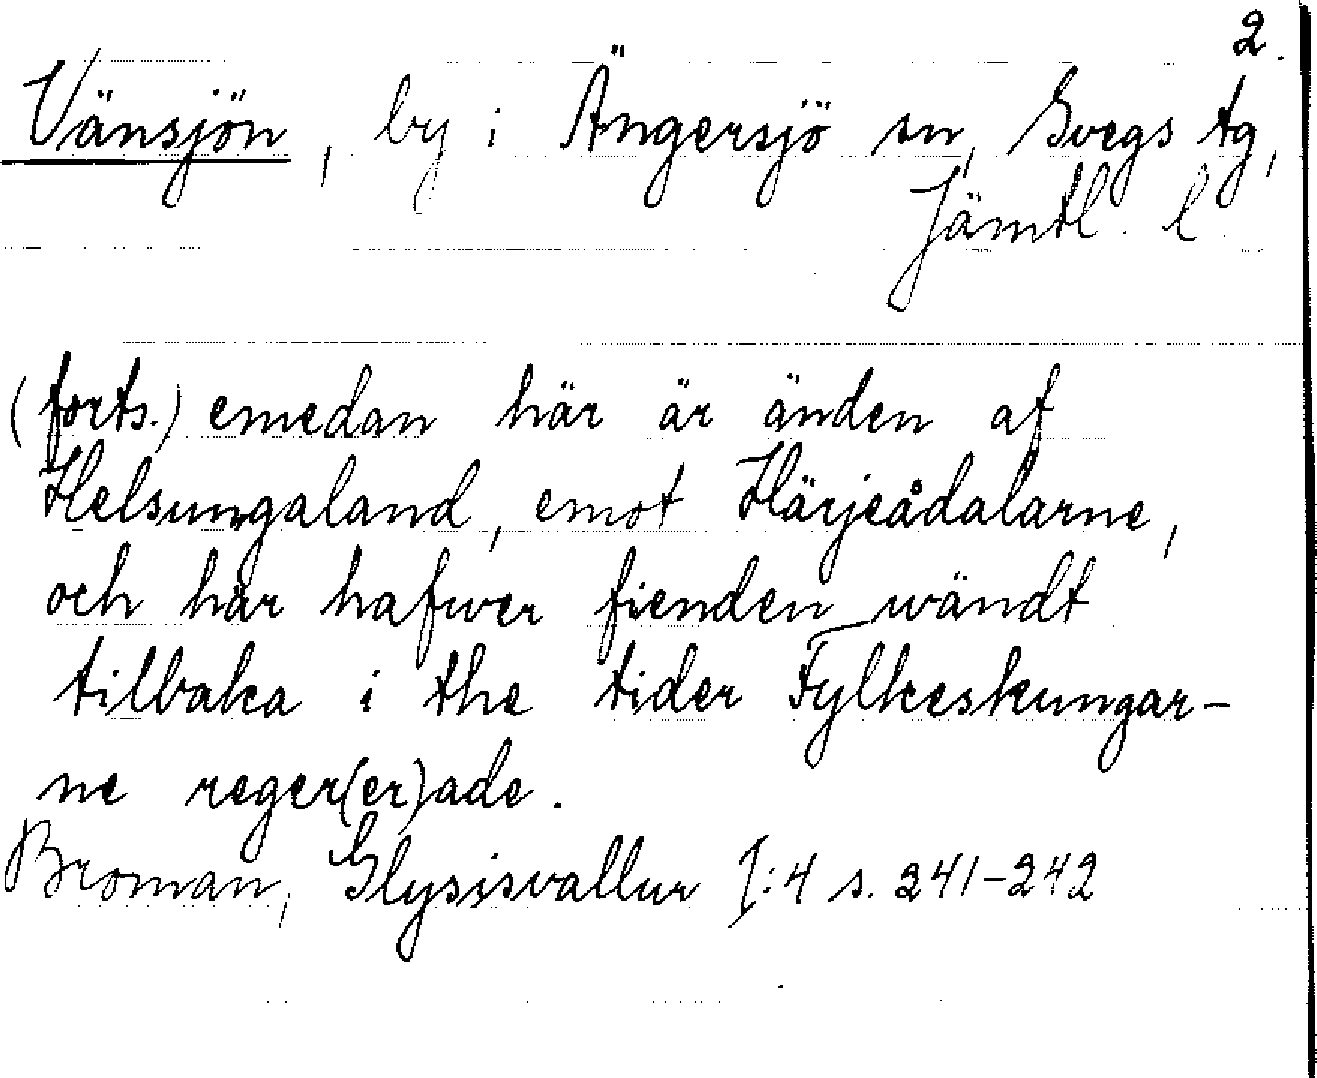 2.
Vänsjön, by i Ängersjö sn, Svegs tg,
Jämtl. l.
(forts.) emedan här är änden af
Helsungaland, emot Härjeådalarne,
och här hafwer fienden wändt
tilbaka i the tider Fylkeskungar-
ne reger(er)ade.
Broman, Glysisvallur I:4 s. 241-242